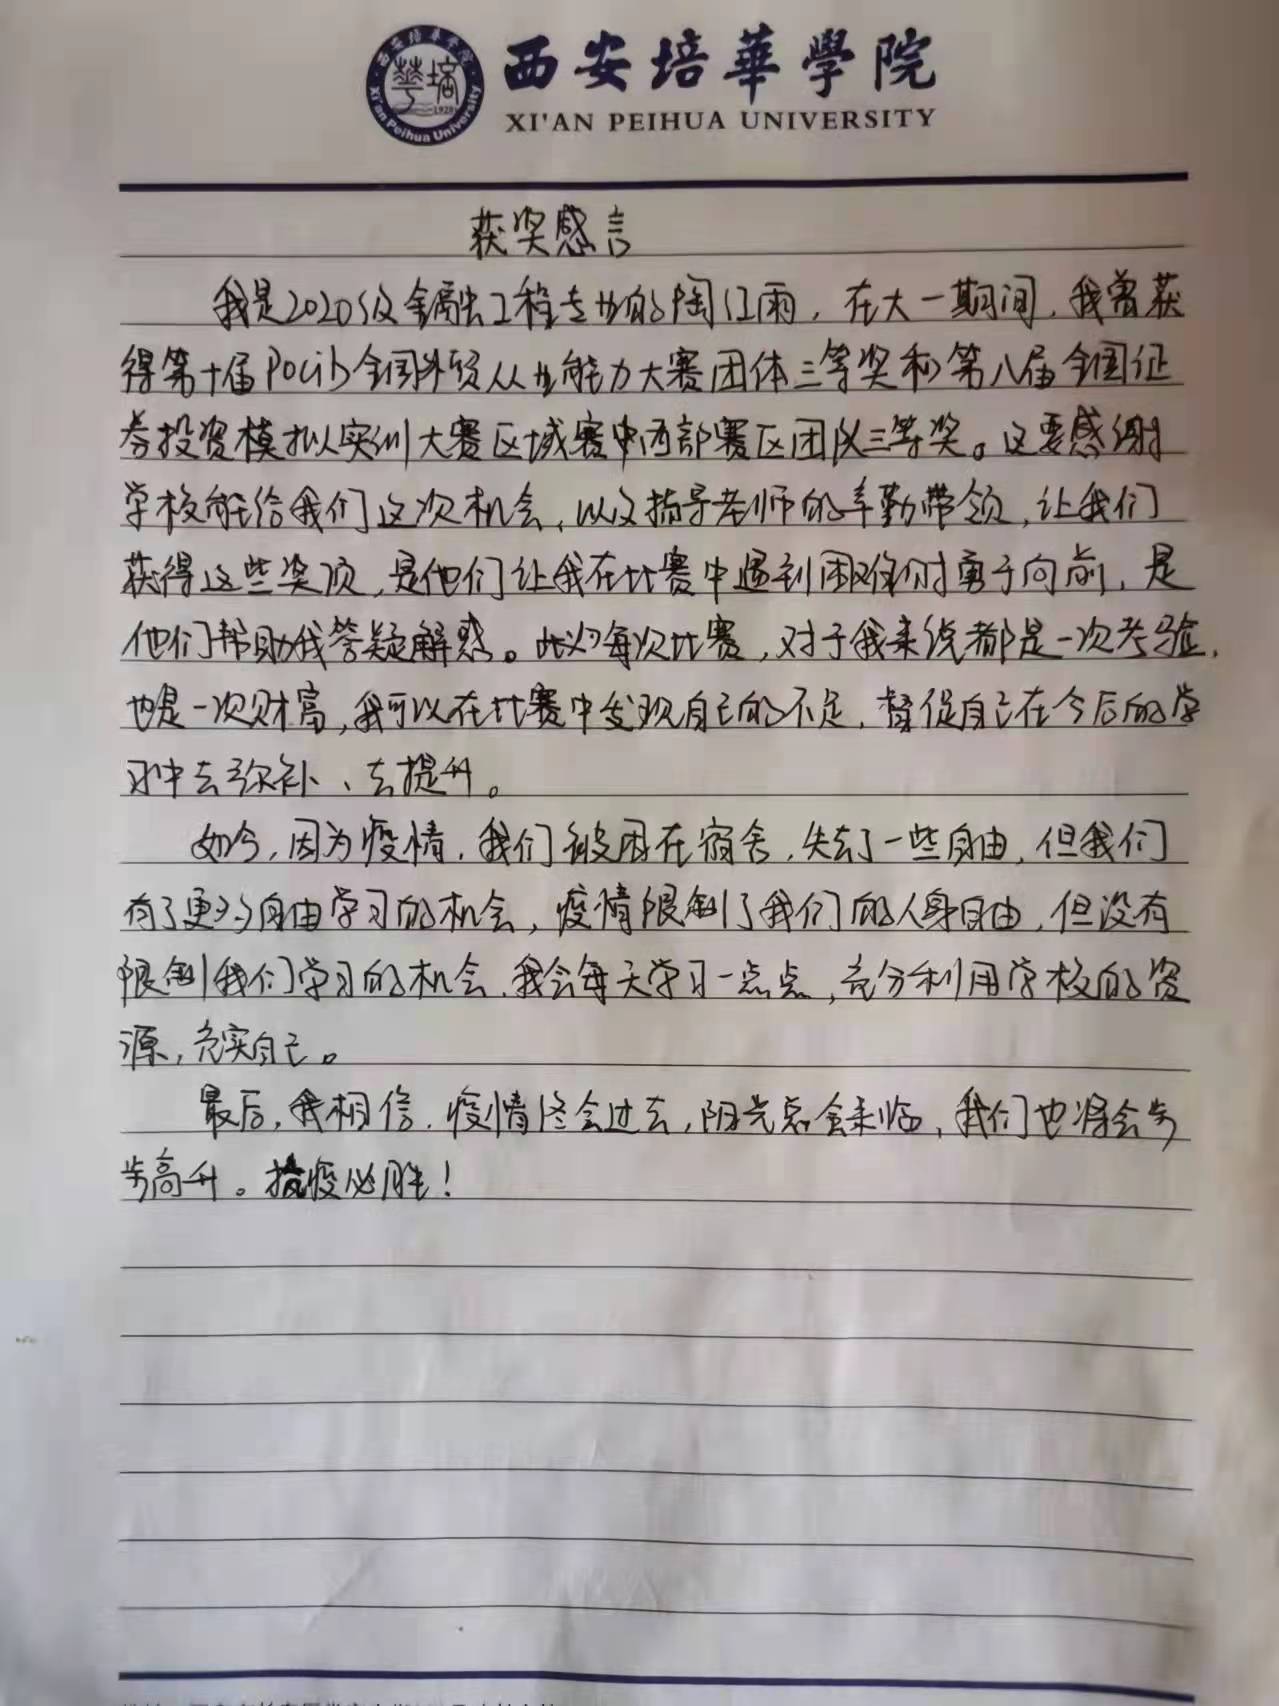 西安培華學院
XI'AN PEIHUA UNIVERSITY
西安培华学院
Xi'an Peihua University
1928
获奖感言
我是2020级金融工程专业的陶江雨，在大一期间，我曾获
得第十届Pocib全国外贸从业能力大赛团体三等奖和第八届全国证
券投资模拟实训大赛区域赛中西部赛区团队三等奖。这要感谢
学校能给我们这次机会、以及指导老师的辛勤带领，让我们
获得这些奖项，是他们让我在比赛中遇到困难时勇于向前，是
他们帮助我答疑解惑。此次每次比赛，对于我来说都是一次考验，
也是一次财富，我可以在比赛中发现自己的不足，督促自己在今后的学
习中去弥补、去提升。
如今，因为疫情，我们被困在宿舍，失去了一些自由，但我们
有了更多自由学习的机会，疫情限制了我们的人身自由，但没有
限制我们学习的机会，我会每天学习一点点，充分利用学校的资
源，充实自己。
最后，我相信，疫情终会过去，阳光总会来临，我们也将会步
步高升。抗疫必胜！